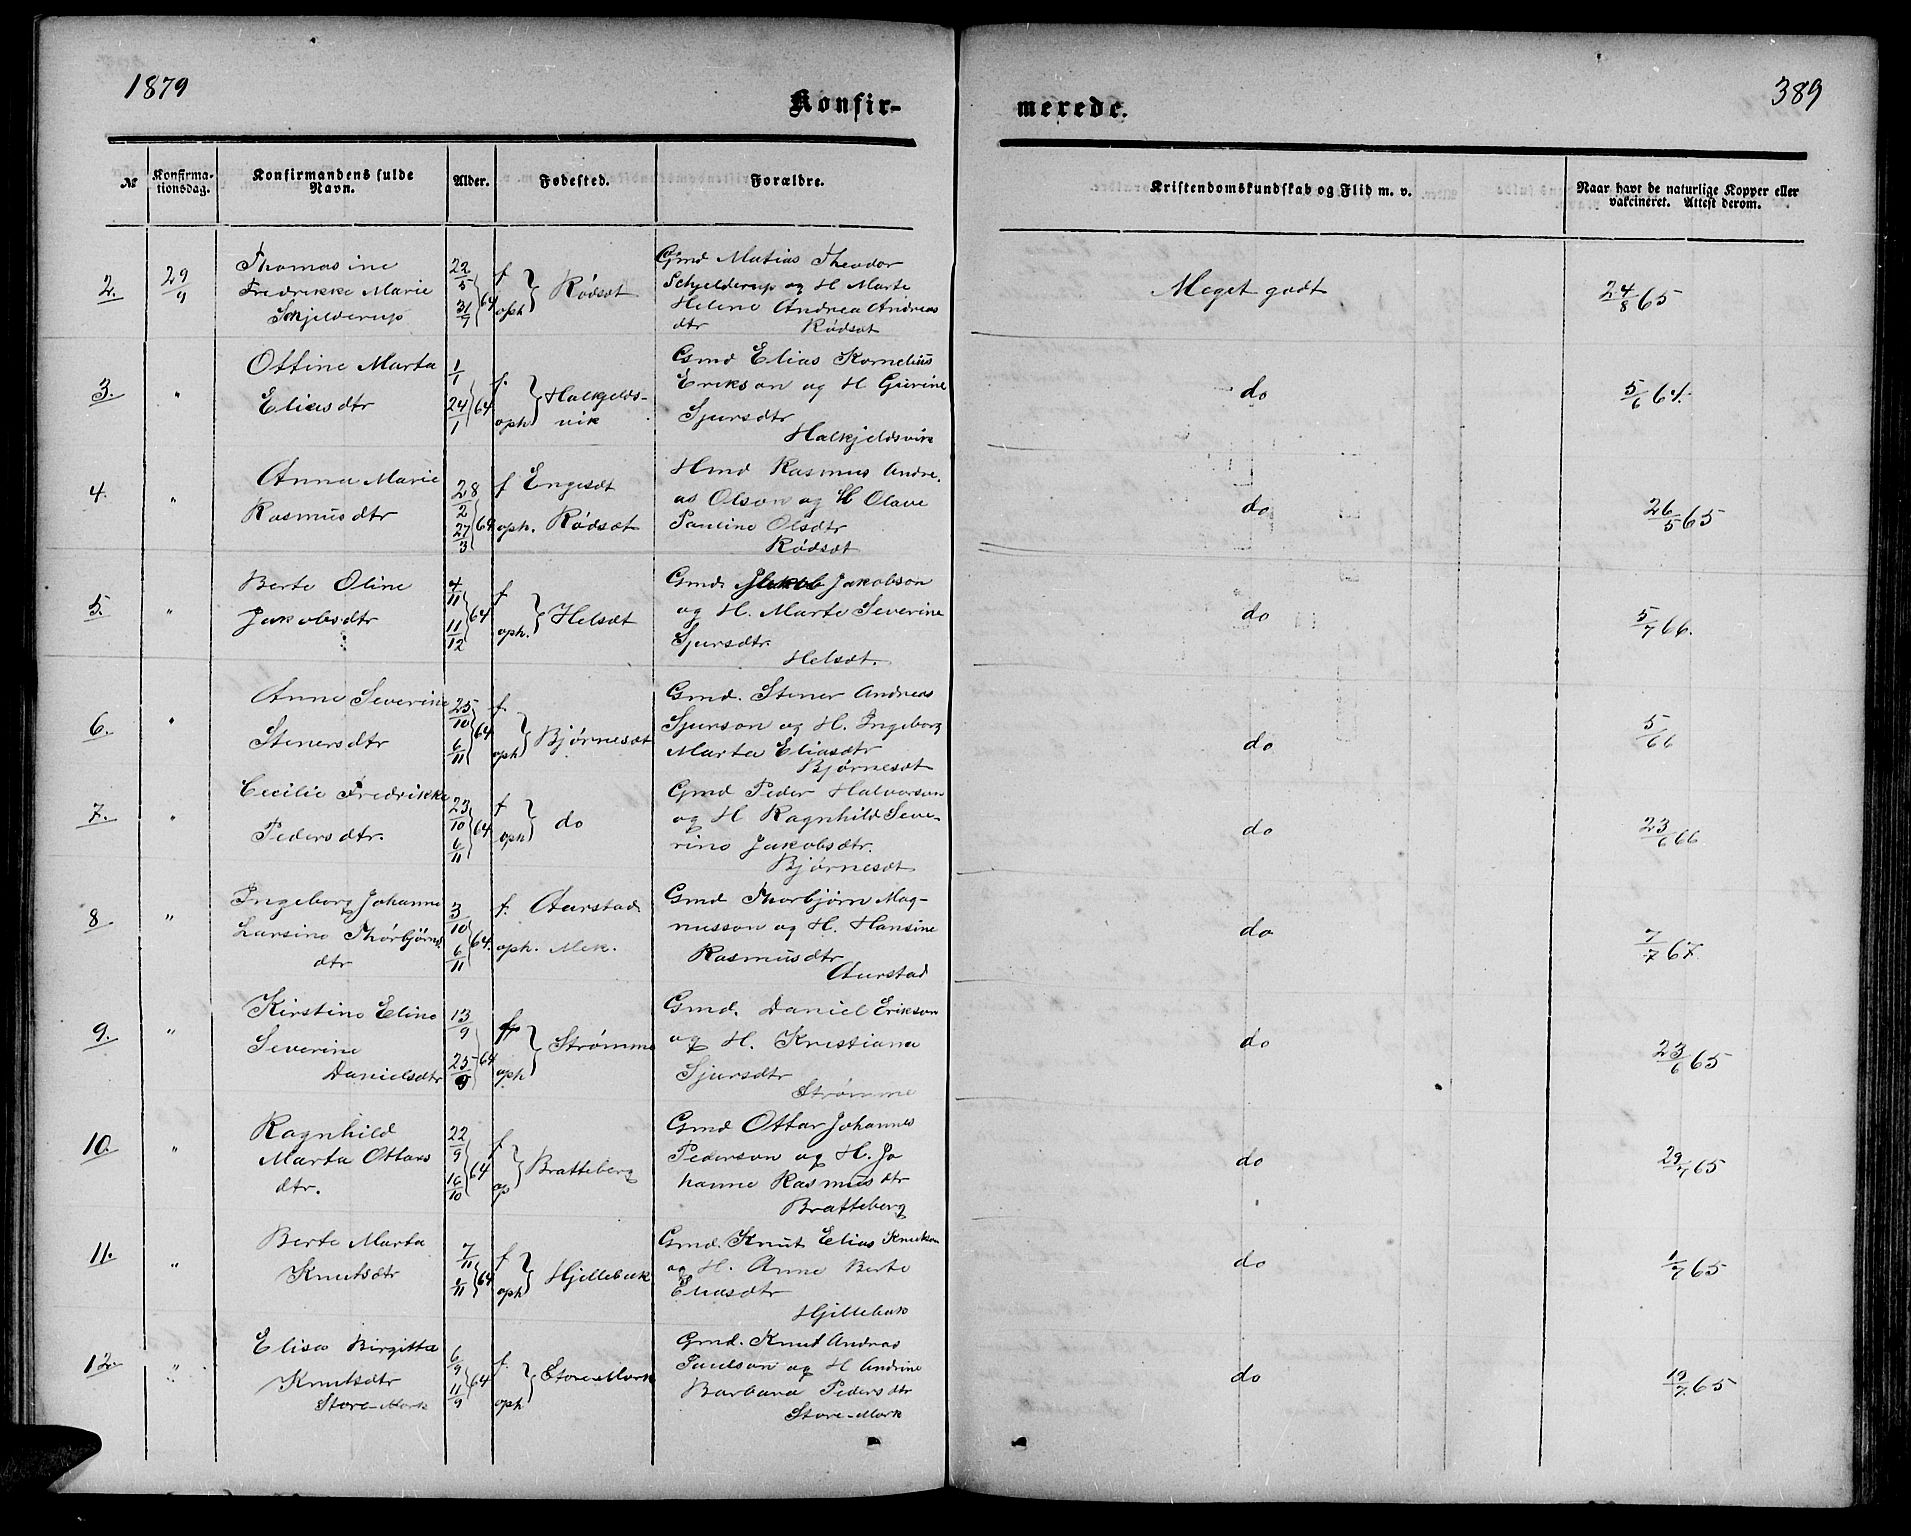 1879
389
Konfir-
merede.
№
Konfirma-
tionsdag.
Konfirmandens fulde
Navn.
Alder.
Fødested.
Forældre.
Kristendomskundskab og Flid m. v.
Naar havt de naturlige Kopper eller
vakcineret. Attest derom.
2. 29/9 Thomasine 22/5 f Rødsæt Gmd Matias Theodor Meget godt 24/8 65
Fredrikke Marie 64 Schjelderup og H Marte
Schjelderup oph Helene Andrea Andreas
dtr Rødsæt
3. " Ottine Marta 1/1 f. Gmd Elias Kornelius do 5/6 64.
Eliasdtr 24/1 64 oph Halkjelds- Erikson og H Gurine
vik Sjursdtr
Halkjeldsvik
4. " Anna Marie 28/2 f Engesæt Hmd Rasmus Andre. do 26/5 65
Rasmusdtr 27/3 64 oph. Rødsæt as Olson og H Olave
Pauline Olsdtr
Rødsæt
5. " Berte Oline 4/11 f Helsæt Gmd. Jakobson do 5/7 66.
Jakobsdtr 11/12 64 oph. og H. Marte Severine
Sjursdtr.
Helsæt.
6. " Anne Severine 25/10 f. Gmd. Stener Andreas do 5/ 66
Stenersdtr 6/11 64 oph Bjørnesæt Sjurson og H. Ingeborg
Marta Eliasdtr
Bjørnesæt
7. " Cecilie Fredrikke 23/10 f do Gmd Peder Halvorson do 23/6 66
Pedersdtr. 6/11 64 oph og H Ragnhild Seve-
rine Jakobsdtr.
Bjørnesæt
8 " Ingeborg Johanne 3/10 f. Aurstad Gmd Thorbjørn Mag- do 7/7 67
Larsine Thorbjørns 6/11 64. oph. Mek. nusson og H. Hansine
dtr Rasmusdtr
Aurstad
9. " Kirstine Eline 13/9 f Strømme Gmd. Daniel Erikson do 23/6 65
Severine 25/9 64 oph og H. Kristiana
Danielsdtr Sjursdtr
Strømme
10. " Ragnhild 22/9 f Bratteberg Gmd Ottar Johannes do 29/7 65
Marta Ottars 16/10 64 op Pederson og H. Jo
dtr. hanne Rasmusdtr
Bratteberg
11. " Berte Marta 7/11 f Hjellebak Gmd. Knut Elias Knutson do 1/7 65
Knutsdtr 64 oph og H. Anne Berte
Eliasdtr
Hjellebak
12. " Elisa Birgitta 6/9 f. Store-Mork Gmd. Knut Andreas do 19/7 65
Knutsdtr 11/9 64 oph Paulson og H Andrine
Store-Mork Barbara Pedersdtr
Store-Mork